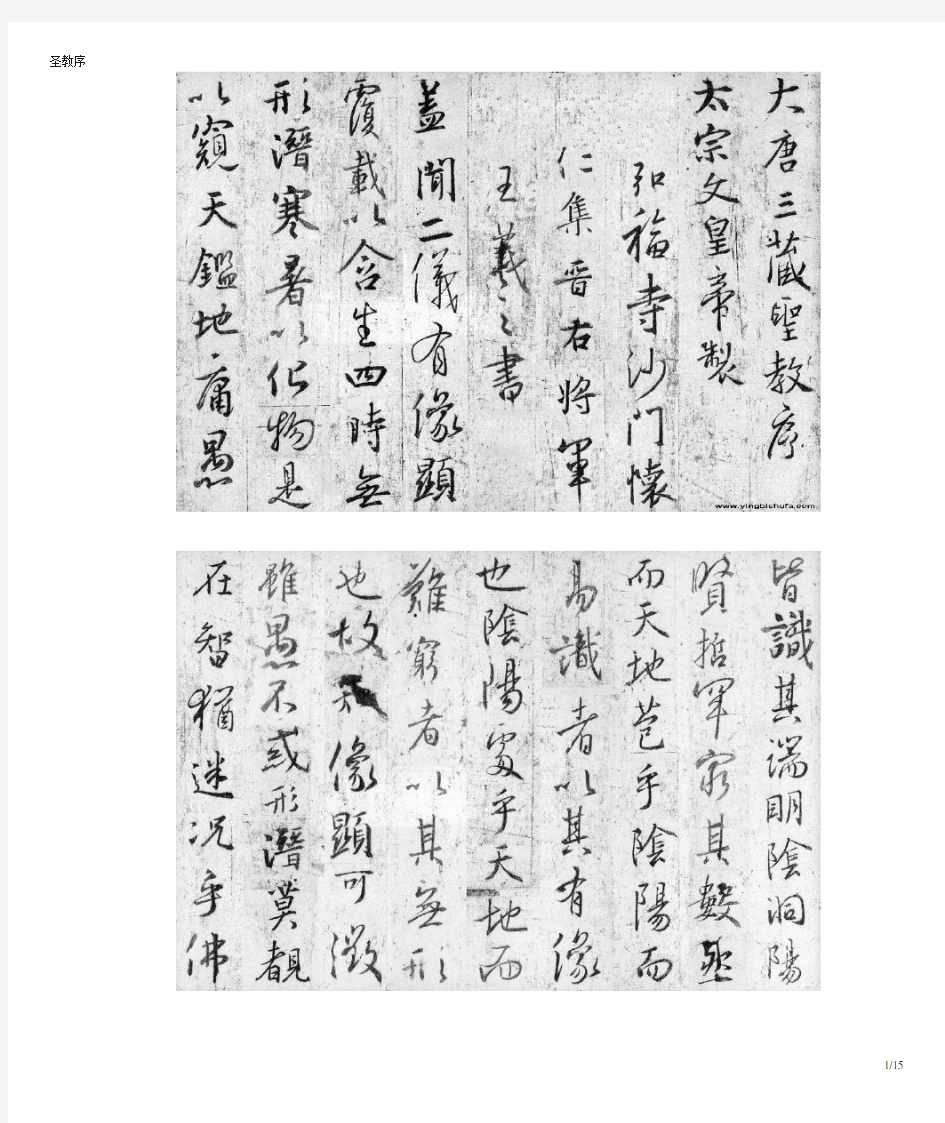 圣教序
大唐三藏聖教序
太宗文皇帝製
弘福寺沙門懷
仁集晉右將軍
王羲之書
蓋聞二儀有像顯
覆載以含生四時無
形潛寒暑以化物是
以窺天鑑地庸愚
www.yingbishufa.com
皆識其端明陰洞陽
賢哲罕窮其數然
而天地苞乎陰陽而
易識者以其有像
也陰陽處乎天地而
難窮者以其無形
也故知像顯可徵
雖愚不惑形潛莫覩
在智猶迷況乎佛
1/15